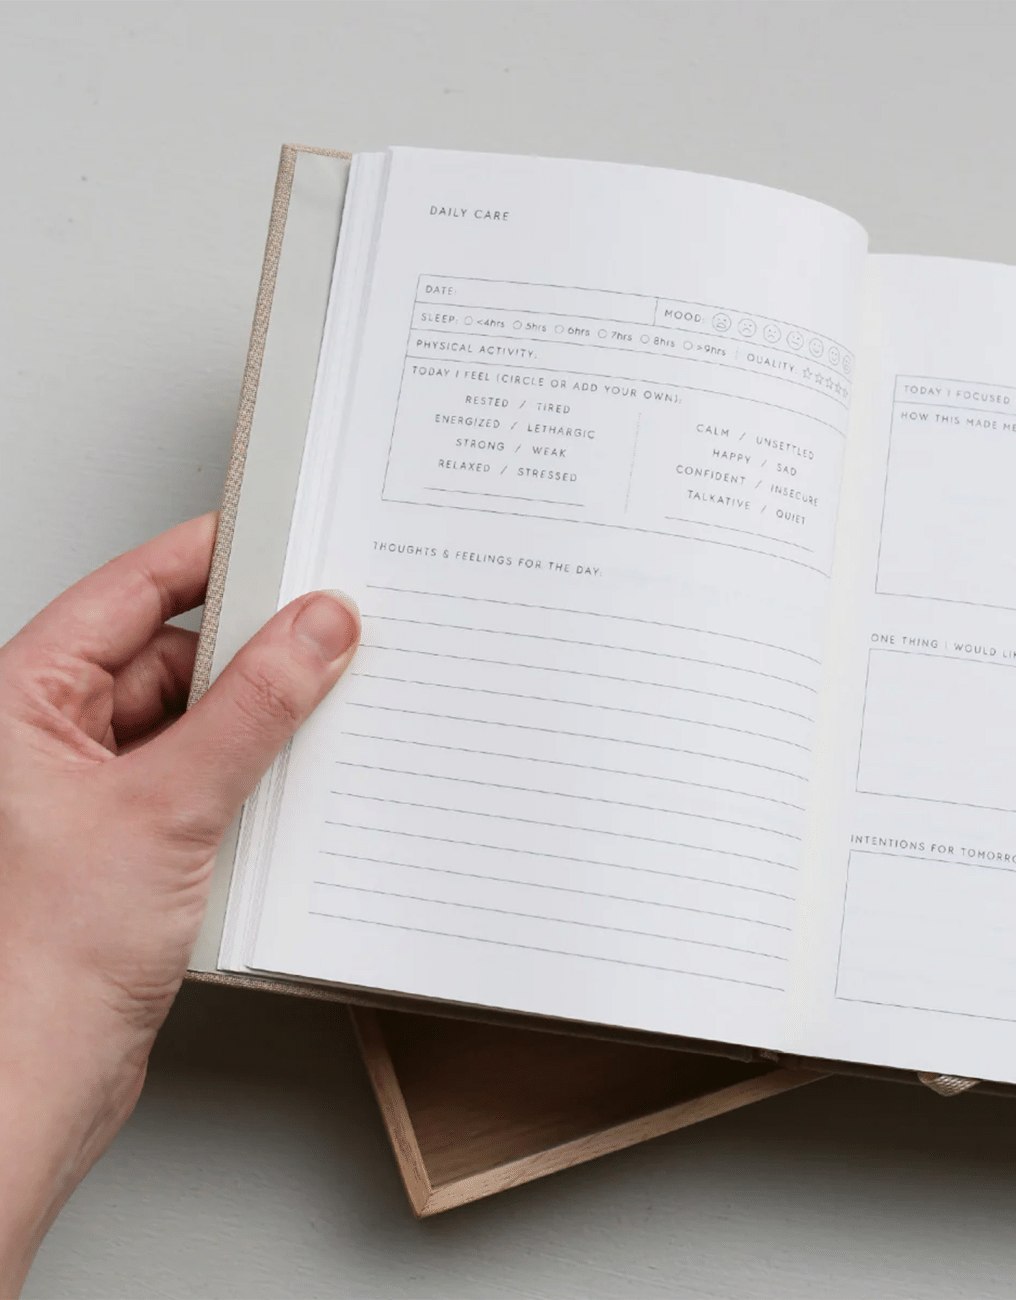 DAILY CARE
DATE:
MOOD:
SLEEP: <4hrs 5hrs 6hrs 7hrs 8hrs >9hrs QUALITY:
PHYSICAL ACTIVITY:
TODAY I FEEL (CIRCLE OR ADD YOUR OWN):
RESTED / TIRED
ENERGIZED / LETHARGIC
STRONG / WEAK
RELAXED / STRESSED
CALM / UNSETTLED
HAPPY / SAD
CONFIDENT / INSECURE
TALKATIVE / QUIET
THOUGHTS & FEELINGS FOR THE DAY:
TODAY I FOCUSED
HOW THIS MADE ME
ONE THING I WOULD
INTENTIONS FOR